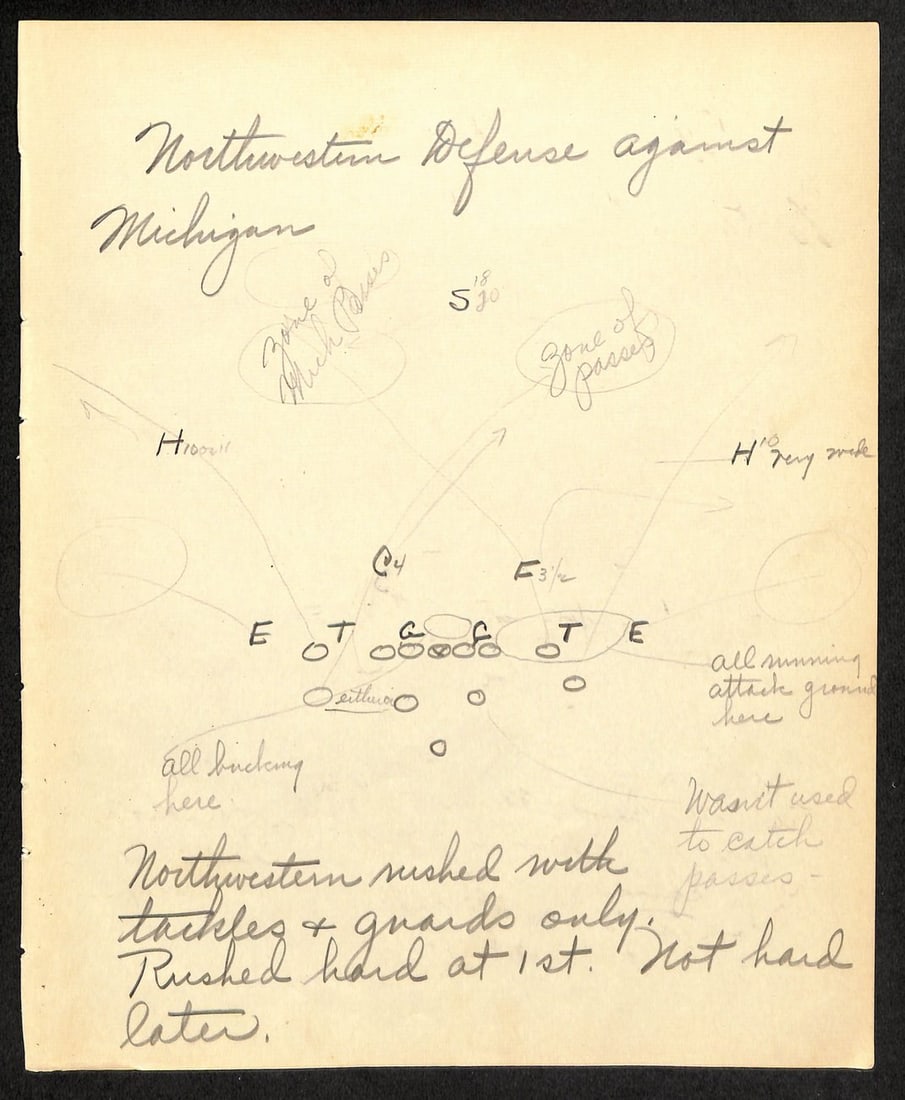 Northwestern Defense against
Michigan
Zone of
Mich Passes
S 18
20
Zone of
passes
H 10 or 11
H 10 very wide
C 4
F 3 1/2
E T G G T E
either
all running
attack ground
here
all bucking
here
Wasn't used
to catch
passes -
Northwestern rushed with
tackles + guards only.
Rushed hard at 1st. Not hard
later.